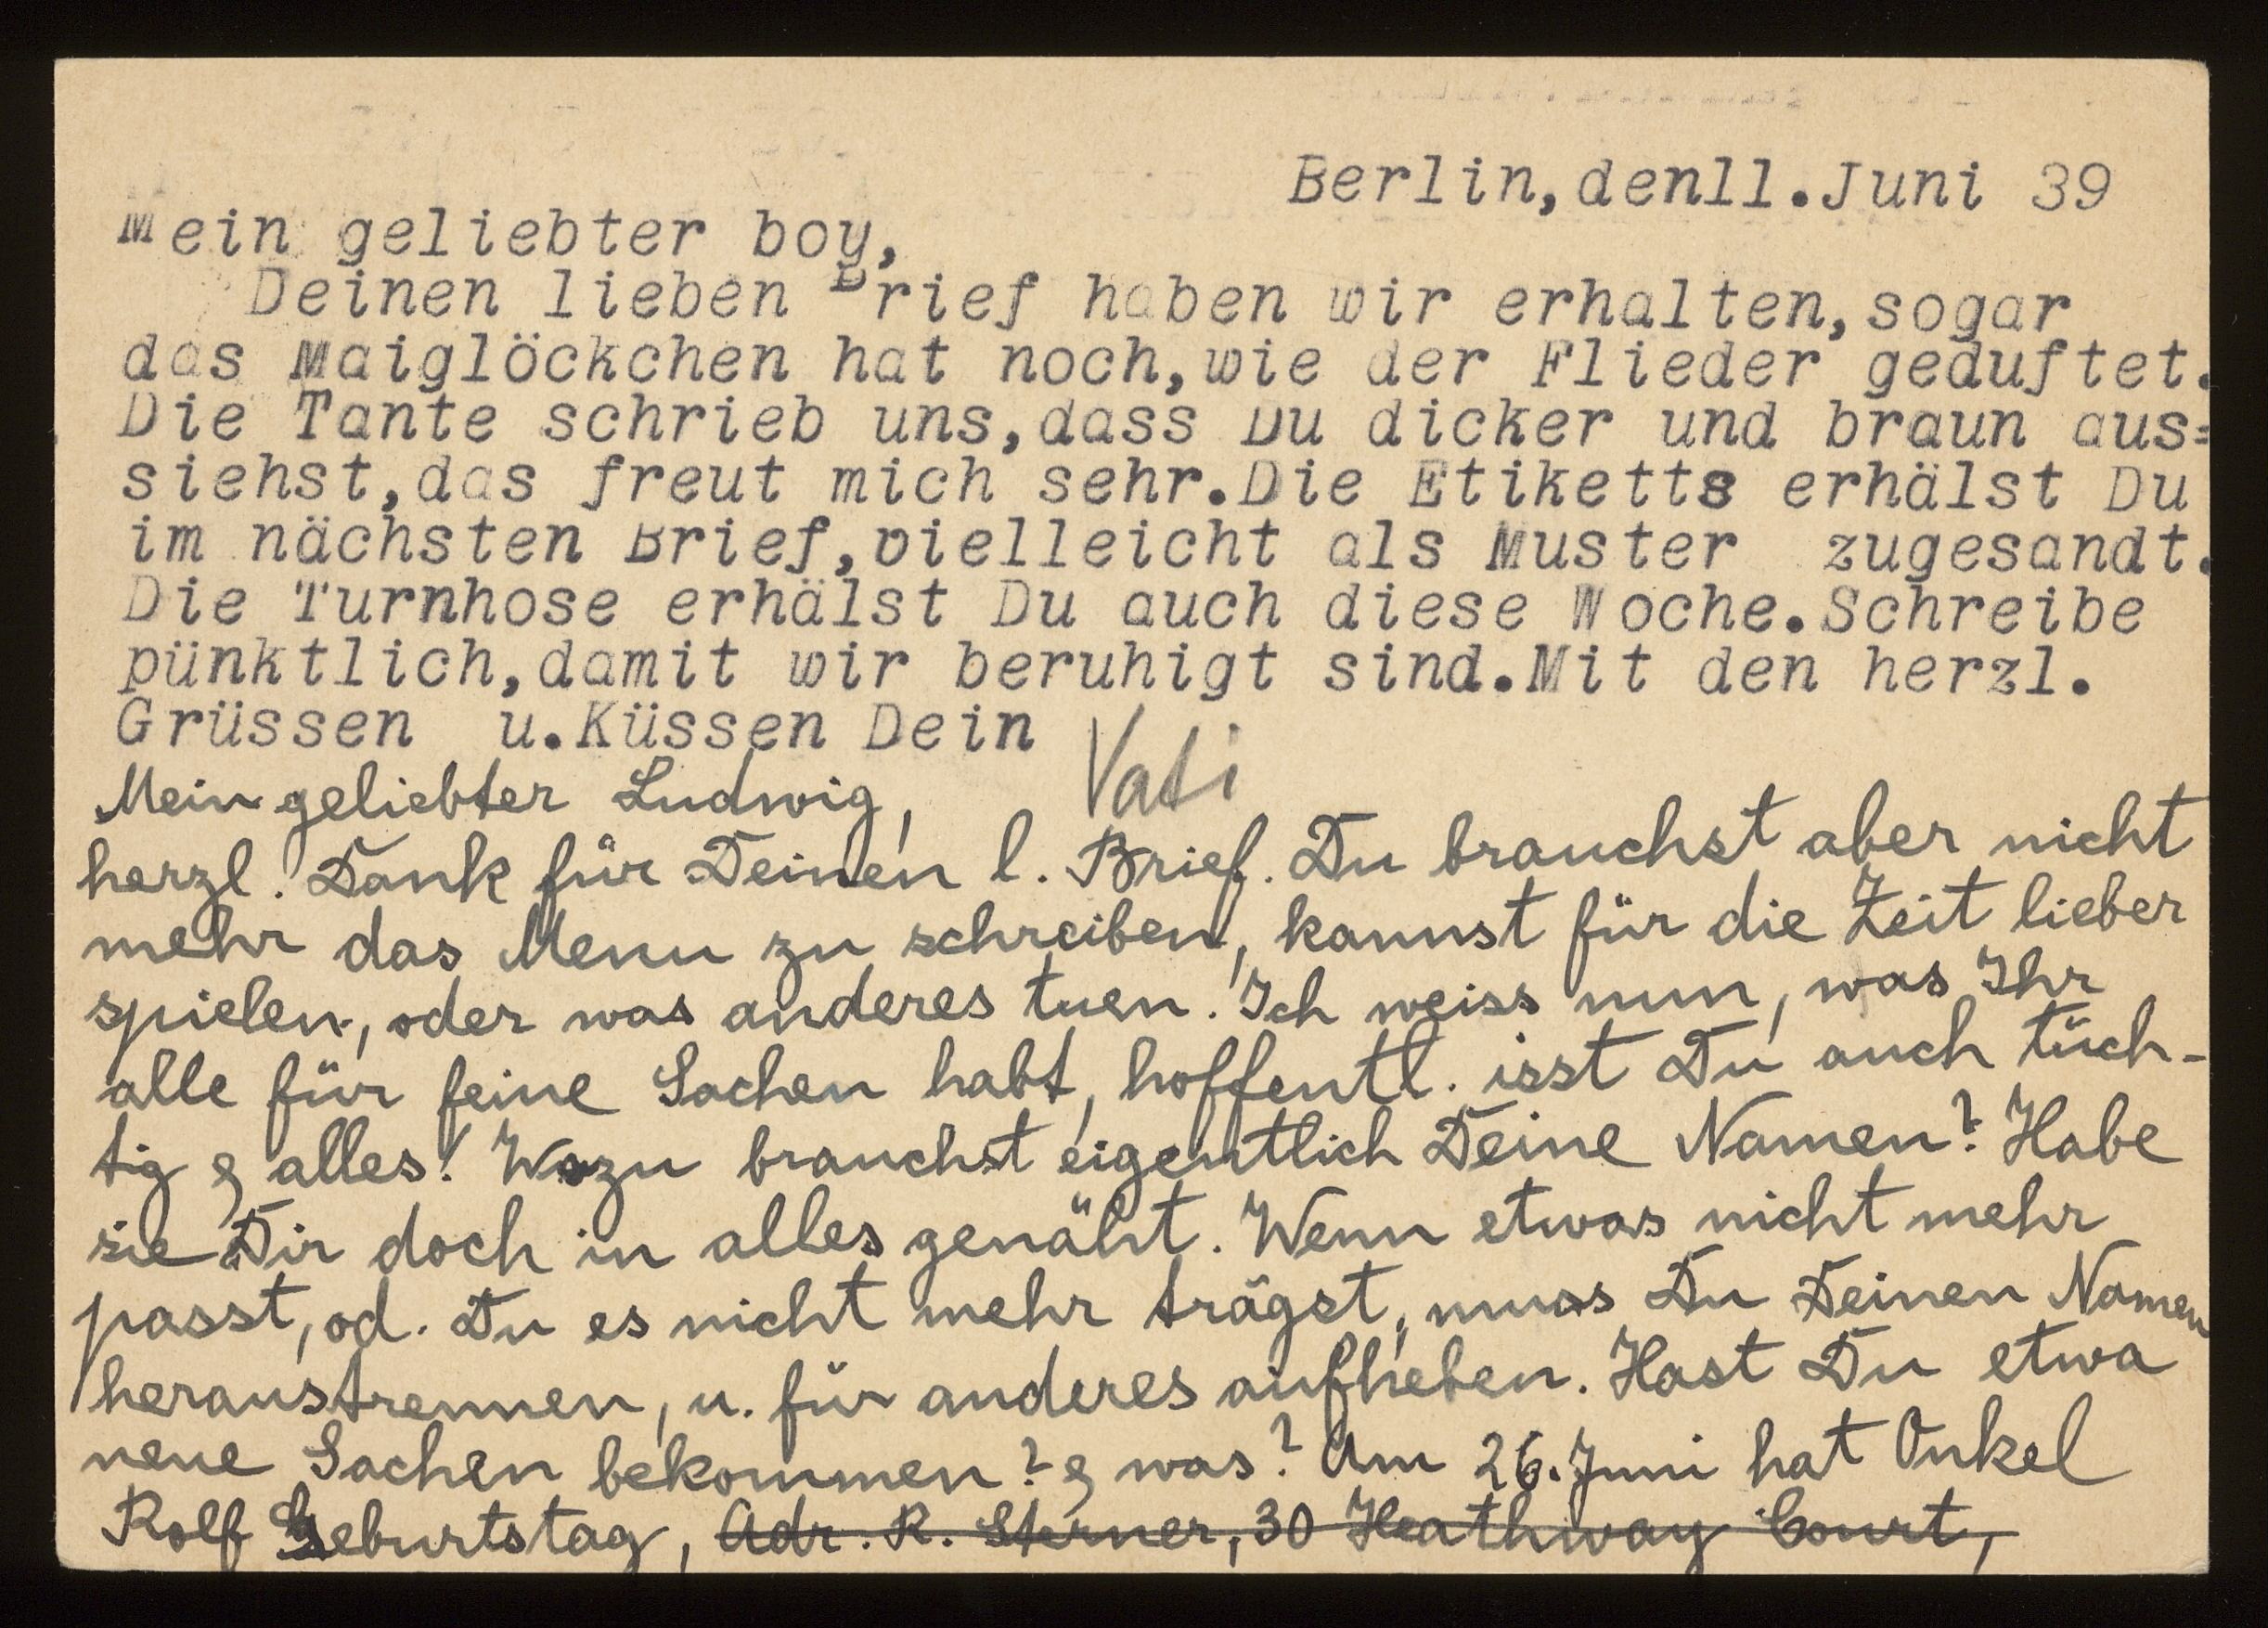 Berlin,den11.Juni 39
Mein geliebter boy,
Deinen lieben Brief haben wir erhalten,sogar
das Maiglöckchen hat noch,wie der Flieder geduftet.
Die Tante schrieb uns,dass Du dicker und braun aus=
siehst,das freut mich sehr.Die Etiketts erhälst Du
im nächsten Brief,vielleicht als Muster zugesandt.
Die Turnhose erhälst Du auch diese Woche.Schreibe
pünktlich,damit wir beruhigt sind.Mit den herzl.
Grüssen u.Küssen Dein Vati
Mein geliebter Ludwig,
herzl. Dank für Deinen l. Brief. Du brauchst aber nicht
mehr das Menu zu schreiben, kannst für die Zeit lieber
spielen, oder was anderes tuen. Ich weiss nun, was Ihr
alle für feine Sachen habt, hoffentl. isst Du auch tüch-
tig & alles! Wozu brauchst eigentlich Deine Namen? Habe
sie Dir doch in alles genäht. Wenn etwas nicht mehr
passt, od. Du es nicht mehr trägst, muss Du Deinen Namen
heraustrennen, u. für anderes aufheben. Hast Du etwa
neue Sachen bekommen? & was? Am 26. Juni hat Onkel
Rolf Geburtstag, Adr. R. Sterner, 30 Heathway Court,